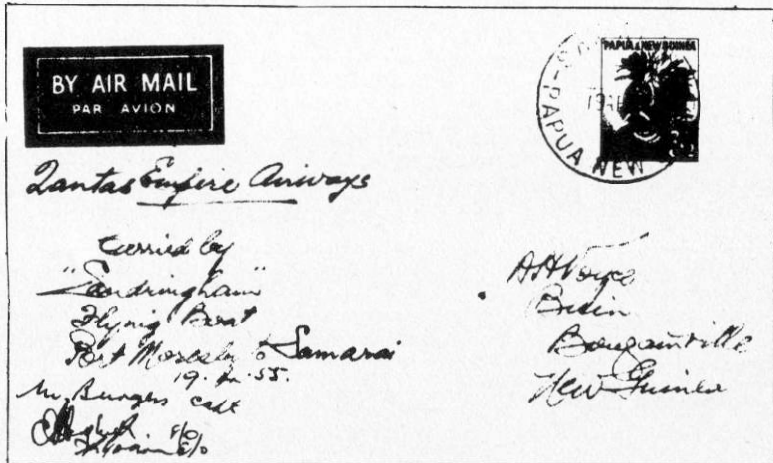 BY AIR MAIL
PAR AVION
PAPUA & NEW GUINEA
PAPUA NEW
Qantas Empire Airways
Carried by
"Sandringham"
Flying Boat
Port Moresby to Samarai
19. 55.
Mr. Burgess
Buin
Bougainville
New Guinea